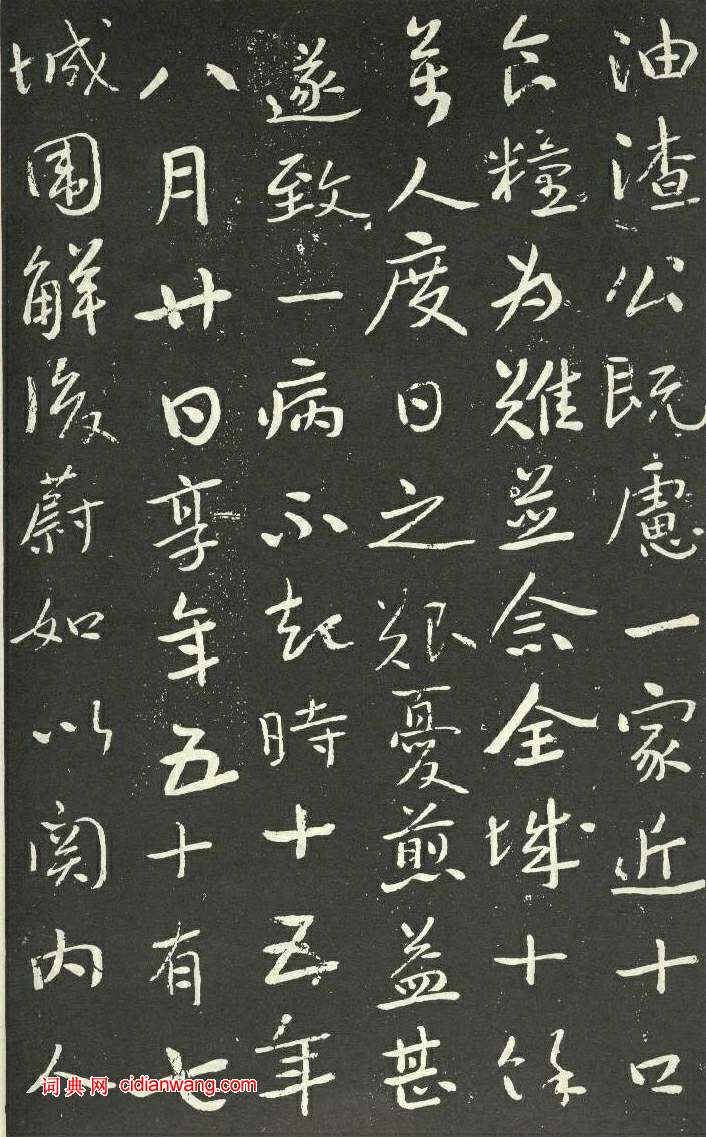 油渣公既慮一家近十口
食糧为難並念全城十餘
萬人度日之艱憂煎益甚
遂致一病不起時十五年
八月廿日享年五十有七
城围解後蔚如以関内
词典网 cidianwang.com